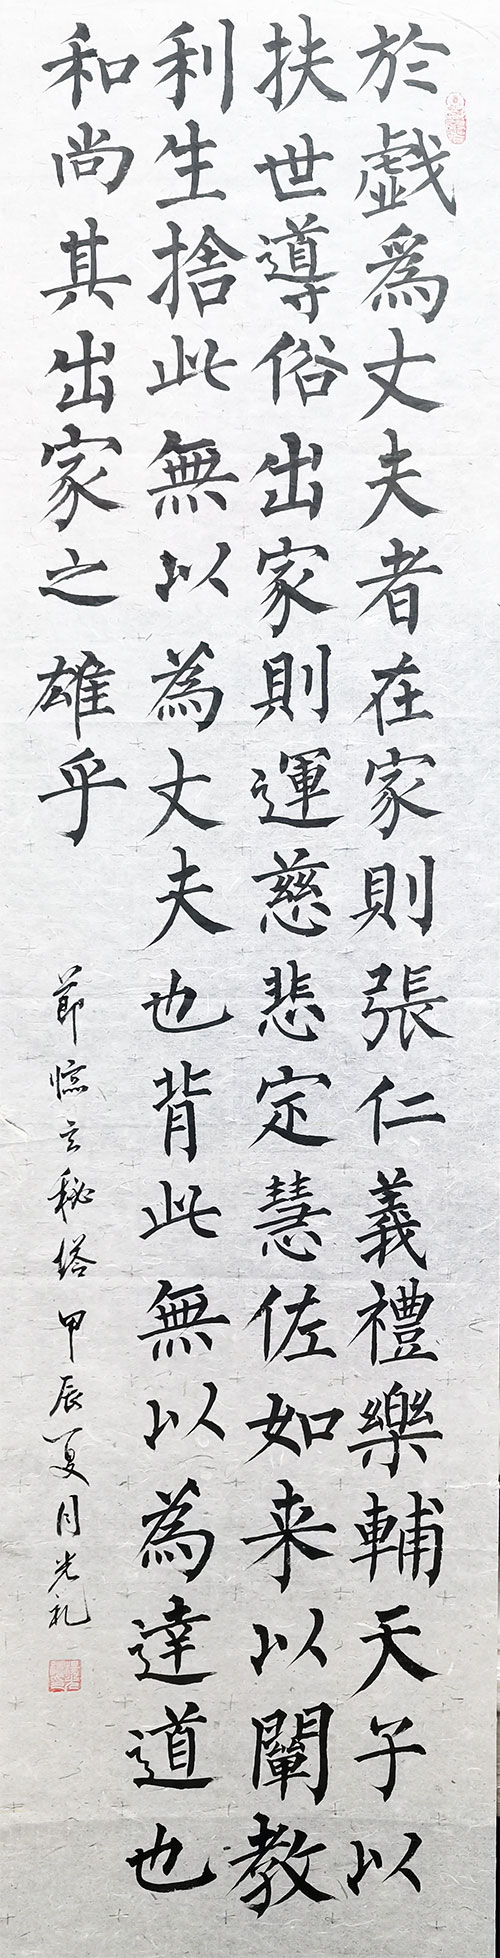 於戲為丈夫者在家則張仁義禮樂輔天子以
扶世導俗出家則運慈悲定慧佐如来以闡教
利生捨此無以為丈夫也背此無以為達道也
和尚其出家之雄乎
節臨玄秘塔甲辰夏月光礼